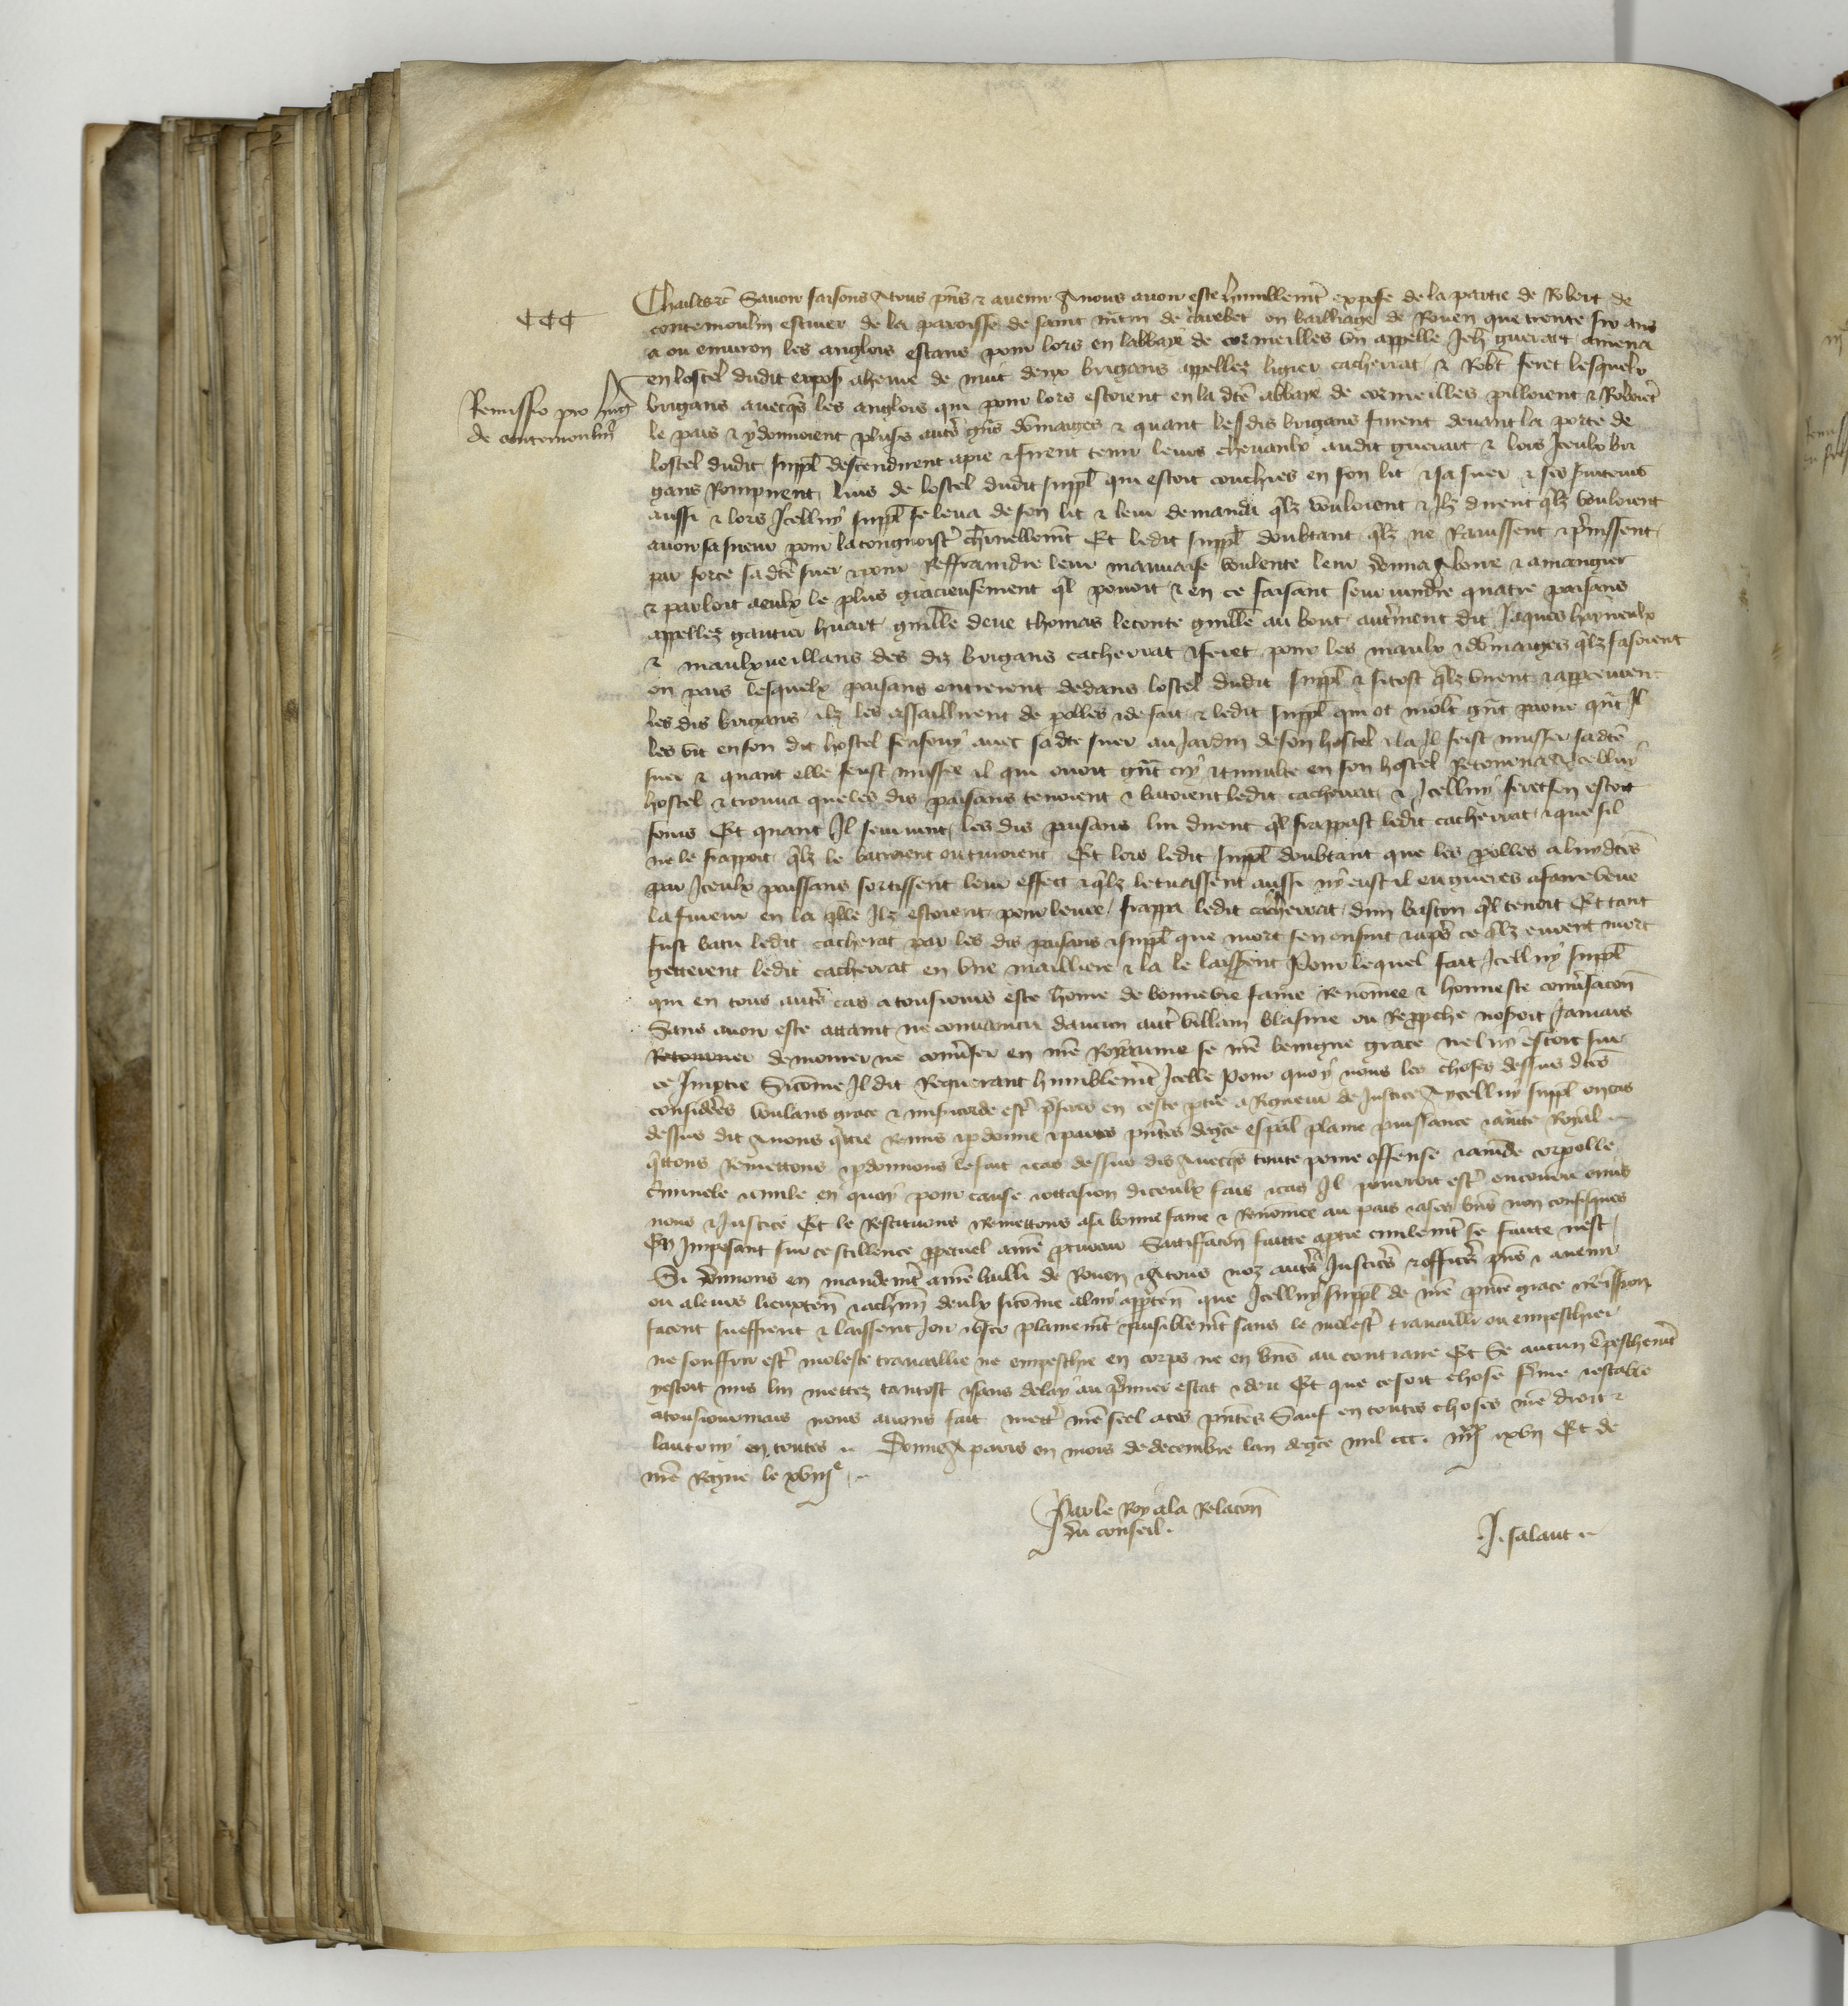 CCC
Charles etc Savoir faisons A tous pñs & avenir A nous avoir esté humblemt exposé de la partie de Robert de
contemoulin estiver de la paroisse de saint mtin de ou bailliage de Rouen que trente six ans
a ou environ les anglois estans pour lors en labbaye de cormeilles un appellé Jeh guerart amena
en lostel dudit expos a heure de nuit deux brigans appellez ligier cacherat & Robt feret lesquelx
Remissio pro
de contemoulin
brigans avecqs les anglois qui pour lors estoient en la dte abbaye de cormeilles pilloient & Roboiet
le pais & y donnoient pluss auts gns dommaiges & quant lesdis brigans furent devant la porte de
lostel dudit suppl descendirent a pie & firent tenir leurs chevaulx audit guerart & lors Iceulx bri
gans Rompirent luis de lostel dudit suppl qui estoit couchiés en son lit & sa suer & ses
aussi & lors Icelluy suppl se leva de son lit & leur demanda qlz vouloient & Ilz dirent qlz vouloient
avoir sa sueur pour la congnoistr charnellemt Et ledit suppl doubtant qlz ne Ravissent & prinssent
par force sa dte suer & pour Reffraindre leur mauvaise voulenté leur donna A boire & a mangier
& parloit a eulx le plus gracieusement ql povoit & en ce faisant seurvindre quatre paisans
appellez gautier huart guille deue thomas leconte guille au bout autrement dit Jaques hayneulx
& maulxveillans des diz brigans cacherat & feret pour les maulx & dommaiges qlz faisoient
ou pais lesquelx paisans entrerent dedans lostel dudit suppl & sitost qlz virent & apperceurent
les dis brigans ilz les assaillirent de polles & de fait & ledit suppl qui ot molt gnt paour qnt Il
les vit en son dit hostel senfouy avec sa dte suer au Jardin de son hostel & la Il feist musser sa dte
suer & quant elle feust mussee il qui ouoit gnt cry & tumulte en son hostel Retourna A Icelluy
hostel & trouva que les dis paisans tenoient & batoient ledit cacherat & Icelluy feret sen estoit
fouis Et quant Il seurvint les dis paisans lui dirent ql frappast ledit cacherrat & que sil
ne le frappoit qlz le batroient ou tueroient Et lors ledit suppl doubtant que les polles a luy dtes
par Iceulx paissans sortissent leur effect & qlz le tuassent aussi ny eust il en gueres a faire veue
la fureur en la qlle Ilz estoient pour leure frappa ledit cacherrat dun baston ql tenoit Et tant
fust batu ledit cacherat par les dis paisans & suppl que mort sen ensuit & aps ce qlz eurent mort
getterent ledit cacherrat en une malliere & la le laissent Pour lequel fait Icelluy suppl
qui en tous auts cas a tousiours esté home de bonne vie fame Renomee & honneste convsacon
Sans avoir esté attaint ne convaincu daucun autr villain blasme ou Repprche nosoit Jamais
Retourner demourer ne convser en nre Royaume se nre benigne grace ne luy estoit sur
ce Impartie Sicome Il dit Requerant humblemt Icelle Pour quoy nous les choses dessus dtes
considerees Voulans grace & misricorde estr pferes en ceste ptie a Rigueur de Justice A ycelluy suppl on cas
dessus dit Avons qttie Remis & pdonne & par ces pntes de gce espal plaine puissance & autte Royal
qttons Remettons & pdonnons le fait & cas dessus dis Avecqs toute poine offense & amde corpolle
criminele & civile en quoy pour cause & occasion diceulx fais & cas Il pourroit estr encouru envs
nous & Justice Et le Restituons & Remettons a sa bonne fame & Renomee au pais & a ses bns non confisques
En Imposant sur ce scillence ppetuel a nre procureur Sattiffacon faitte a ptie civilemt se faitte nest
Si donnons en mandemt a nre bailli de Rouen & A tous noz auts Justices & offices pns & avenir
ou a leurs lieuxten & a chun deulx sicome a luy apprten que Icelluy suppl de nre pnte grace & Remission
facent sueffrent & laissent Joir & user plainemt & paisiblemt sans le molestr travaillr ou empeschier
ne souffrir estr molesté travaillie ne empesché en corps ne en bns au contraire Et Se aucun empeschemt
y estoit mis lui mettez tantost & sans delay au premier estat & deu Et que ce soit chose ferme & estable
a tousiourmais nous avons fait mettr nre seel a ces pntes Sauf en toutes choses nre droit &
lautruy en toutes Donné A paris ou mois de decembre lan de gce mil ccc iiijxx & xvij Et de
nre Regne le xviije
Par le Roy a la Relacon
du conseil
J. salaut